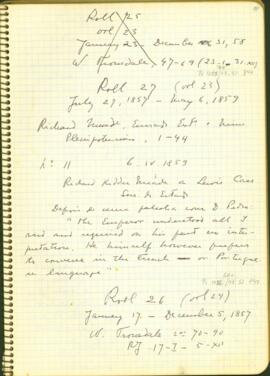 Roll 25
vol 23
January 23 - December 31, 58
W. Trousdale 47-69 (23-I - 31-XII)
Roll 27 (vol 23)
July 27, 1857 - May 6, 1859
Richard Meade, Envoy Ext. + Min
Plenipotenciary, 1-44
No 11 6. IV 1859
Richard Kidder Meade a Lewis Cass
Sec. de Estado
Depois de uma palestra com D. Pedro
"the Emperor understood all I
said and required on his part no inter-
pretation. He himself however prefers
to converse in the French - or Portugue-
se language"
Roll 26 (vol 24)
January 17 - December 5, 1857
W. Trousdale nos 70-90
RJ 17-I - 5-XII